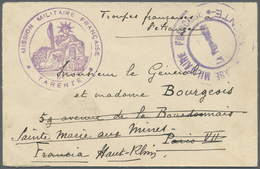 Troupes françaises à
l'étranger
MISSION MILITAIRE FRANÇAISE
TARENTE
Monsieur le Général
et madame Bourgeois
59 avenue de la Bourdonnais
Sainte Marie aux Mines Paris VII
Francia Haut-Rhin